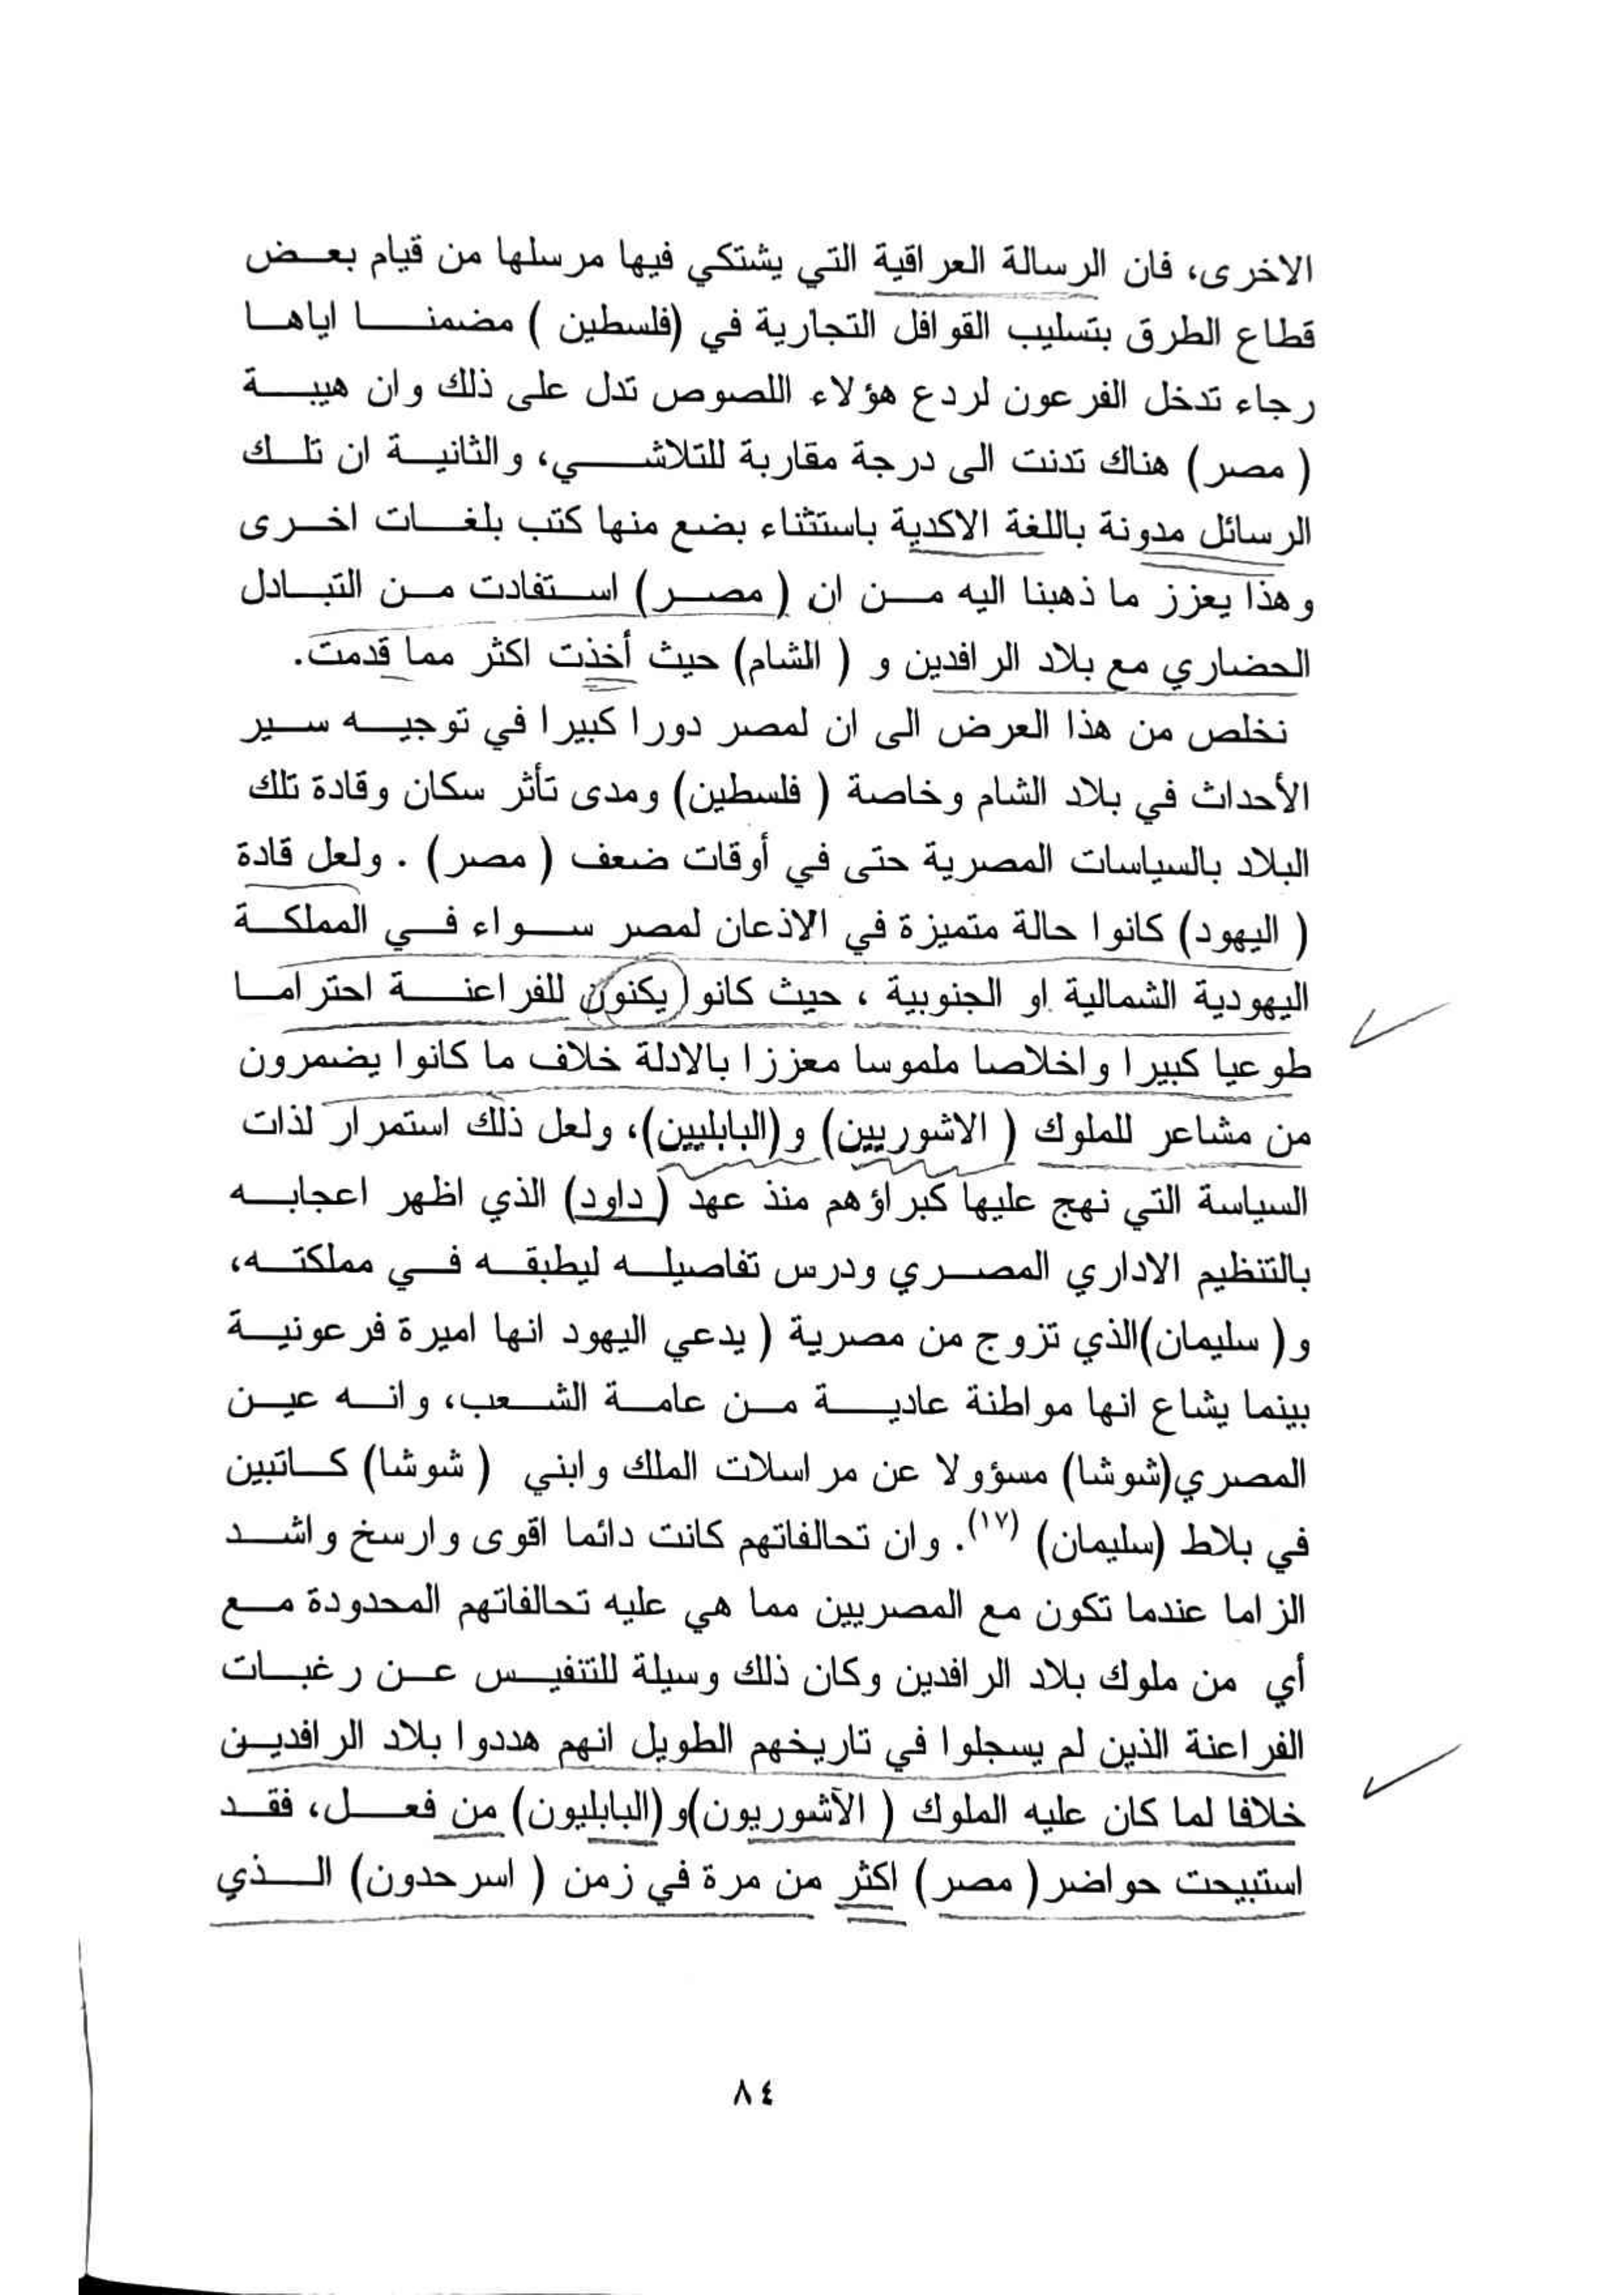 الاخرى، فان الرسالة العراقية التي يشتكي فيها مرسلها من قيام بعض
قطاع الطرق بتسليب القوافل التجارية في (فلسطين ) مضمنا اياها
رجاء تدخل الفرعون لردع هؤلاء اللصوص تدل على ذلك وان هيبة
( مصر) هناك تدنت الى درجة مقاربة للتلاشي، والثانية ان تلك
الرسائل مدونة باللغة الاكدية باستثناء بضع منها كتب بلغات اخرى
وهذا يعزز ما ذهبنا اليه من ان ( مصر) استفادت من التبادل
الحضاري مع بلاد الرافدين و ( الشام) حيث أخذت اكثر مما قدمت.
نخلص من هذا العرض الى ان لمصر دورا كبيرا في توجيه سير
الأحداث في بلاد الشام وخاصة ( فلسطين) ومدى تأثر سكان وقادة تلك
البلاد بالسياسات المصرية حتى في أوقات ضعف ( مصر) . ولعل قادة
( اليهود) كانوا حالة متميزة في الاذعان لمصر سواء في المملكة
اليهودية الشمالية او الجنوبية ، حيث كانوا يكنون للفراعنة احتراما
طوعيا كبيرا واخلاصا ملموسا معززا بالادلة خلاف ما كانوا يضمرون
من مشاعر للملوك ( الاشوريين) و(البابليين)، ولعل ذلك استمرار لذات
السياسة التي نهج عليها كبراؤهم منذ عهد (داود) الذي اظهر اعجابه
بالتنظيم الاداري المصري ودرس تفاصيله ليطبقه في مملكته،
و( سليمان)الذي تزوج من مصرية ( يدعي اليهود انها اميرة فرعونية
بينما يشاع انها مواطنة عادية من عامة الشعب، وانه عين
المصري(شوشا) مسؤولا عن مراسلات الملك وابني ( شوشا) كاتبين
في بلاط (سليمان) (١٧). وان تحالفاتهم كانت دائما اقوى وارسخ واشد
الزاما عندما تكون مع المصريين مما هي عليه تحالفاتهم المحدودة مع
أي من ملوك بلاد الرافدين وكان ذلك وسيلة للتنفيس عن رغبات
الفراعنة الذين لم يسجلوا في تاريخهم الطويل انهم هددوا بلاد الرافدين
خلافا لما كان عليه الملوك ( الآشوريون)و(البابليون) من فعل، فقد
استبيحت حواضر( مصر) اكثر من مرة في زمن ( اسرحدون) الذي
٨٤